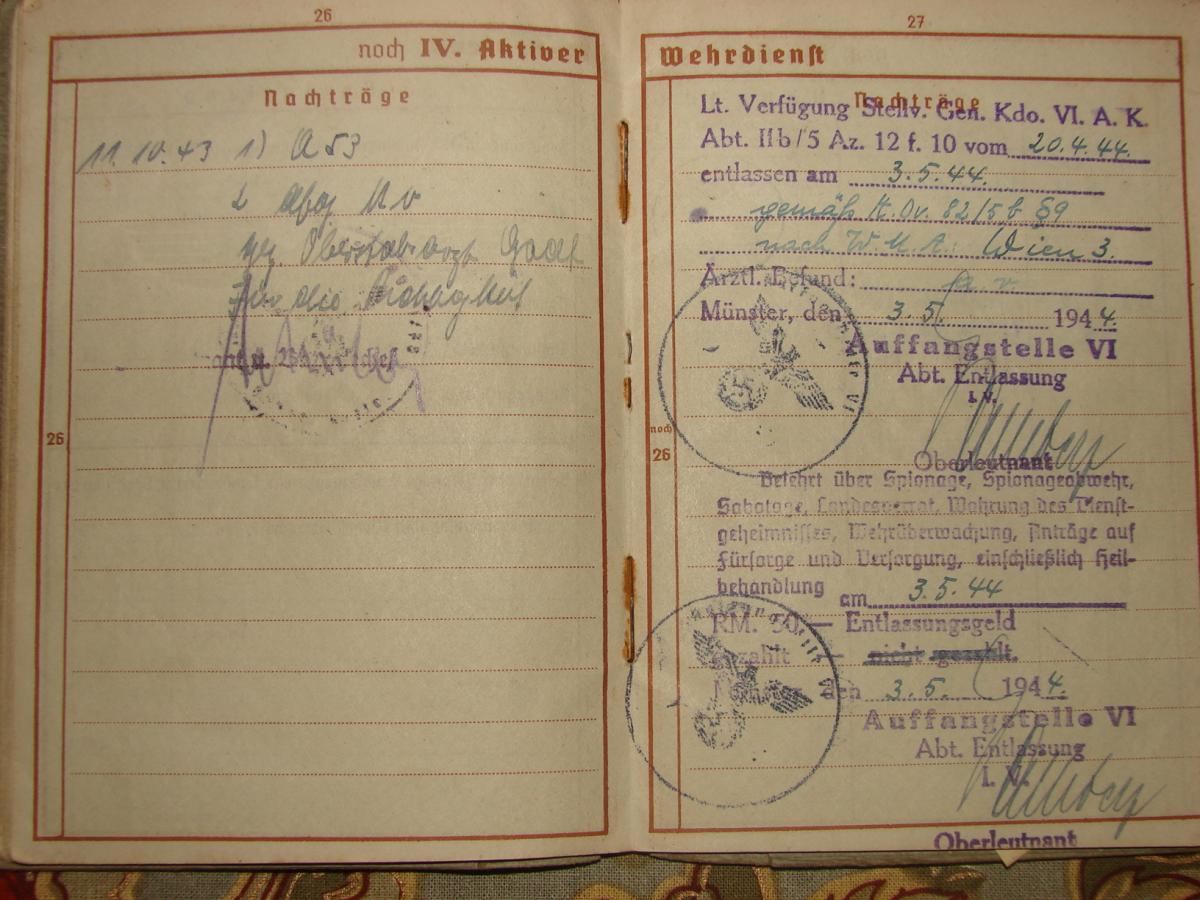 26
noch IV. Aktiver
Nachträge
11.10.43 1) A 53
gez. Oberstabsarzt
Für die Richtigkeit
26
27
Wehrdienst
Nachträge
Lt. Verfügung Stellv. Gen. Kdo. VI. A. K.
Abt. IIb/5 Az. 12 f. 10 vom 20.4.44.
entlassen am 3.5.44.
gemäß H.Dv. 82/5b §9
nach W.M.A.: Wien 3.
Ärztl. Befund: a. v.
Münster, den 3.5. 1944.
Auffangstelle VI
Abt. Entlassung
I. V.
Oberleutnant
noch
26
Belehrt über Spionage, Spionageabwehr,
Sabotage, Landesverrat, Wahrung des Dienst-
geheimnisses, Wehrüberwachung, Anträge auf
Fürsorge und Versorgung, einschließlich Heil-
behandlung am 3.5.44
RM. 50.— Entlassungsgeld
gezahlt — nicht gezahlt.
Münster, den 3.5. 1944.
Auffangstelle VI
Abt. Entlassung
I. V.
Oberleutnant